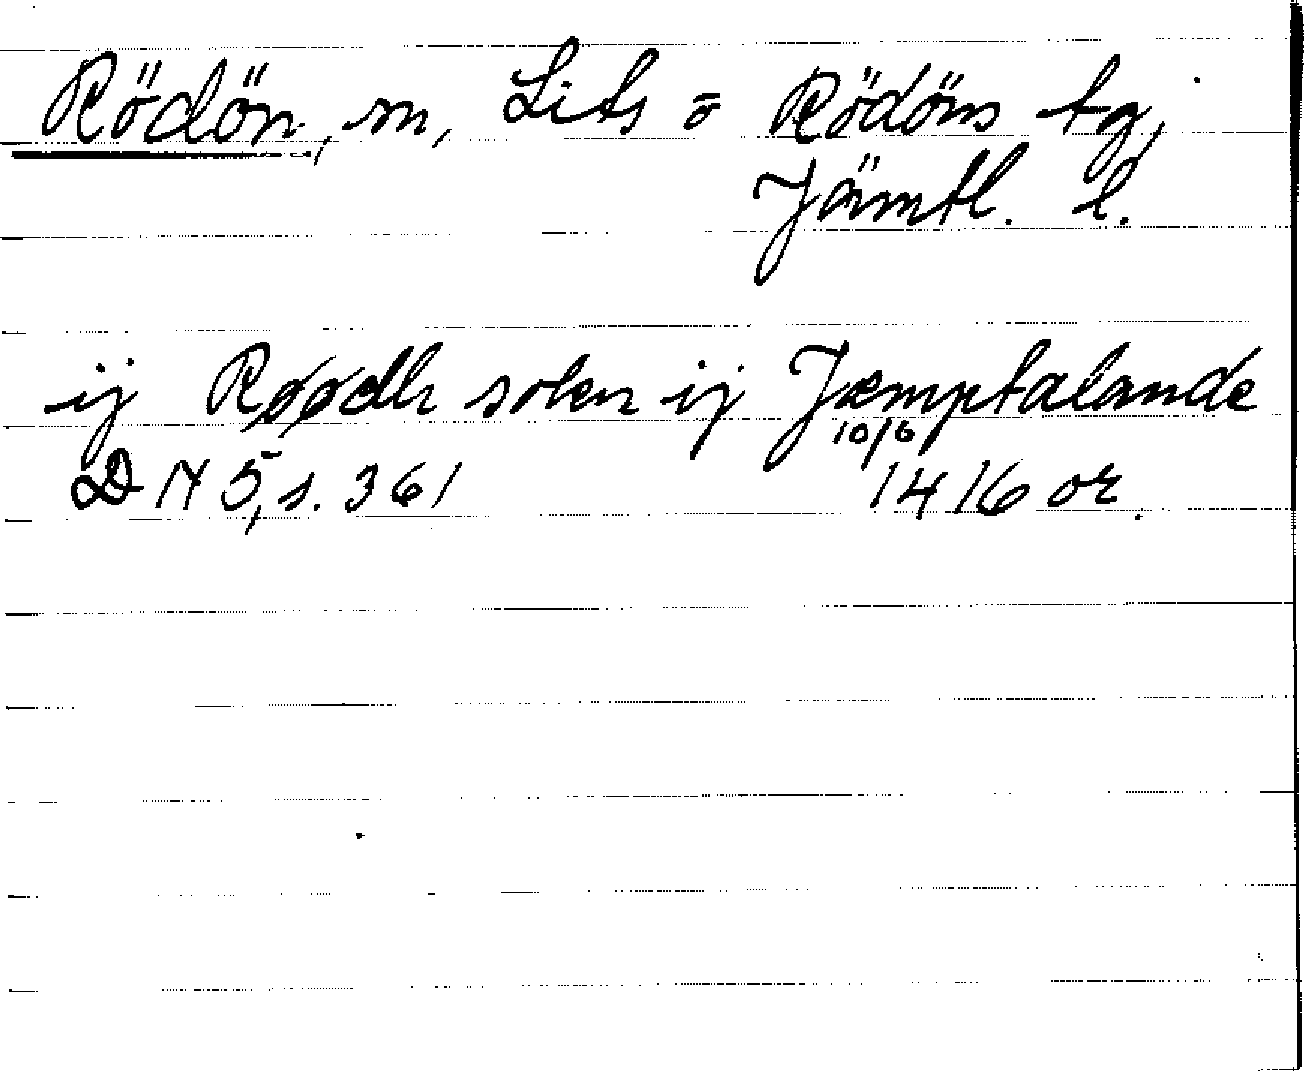 Rödön, sn, Lits o Rödöns tg,
Jämtl. l.
ij Røødh sokn ij Jæmptalande
10/6
DN 5, s. 361 1416 or.